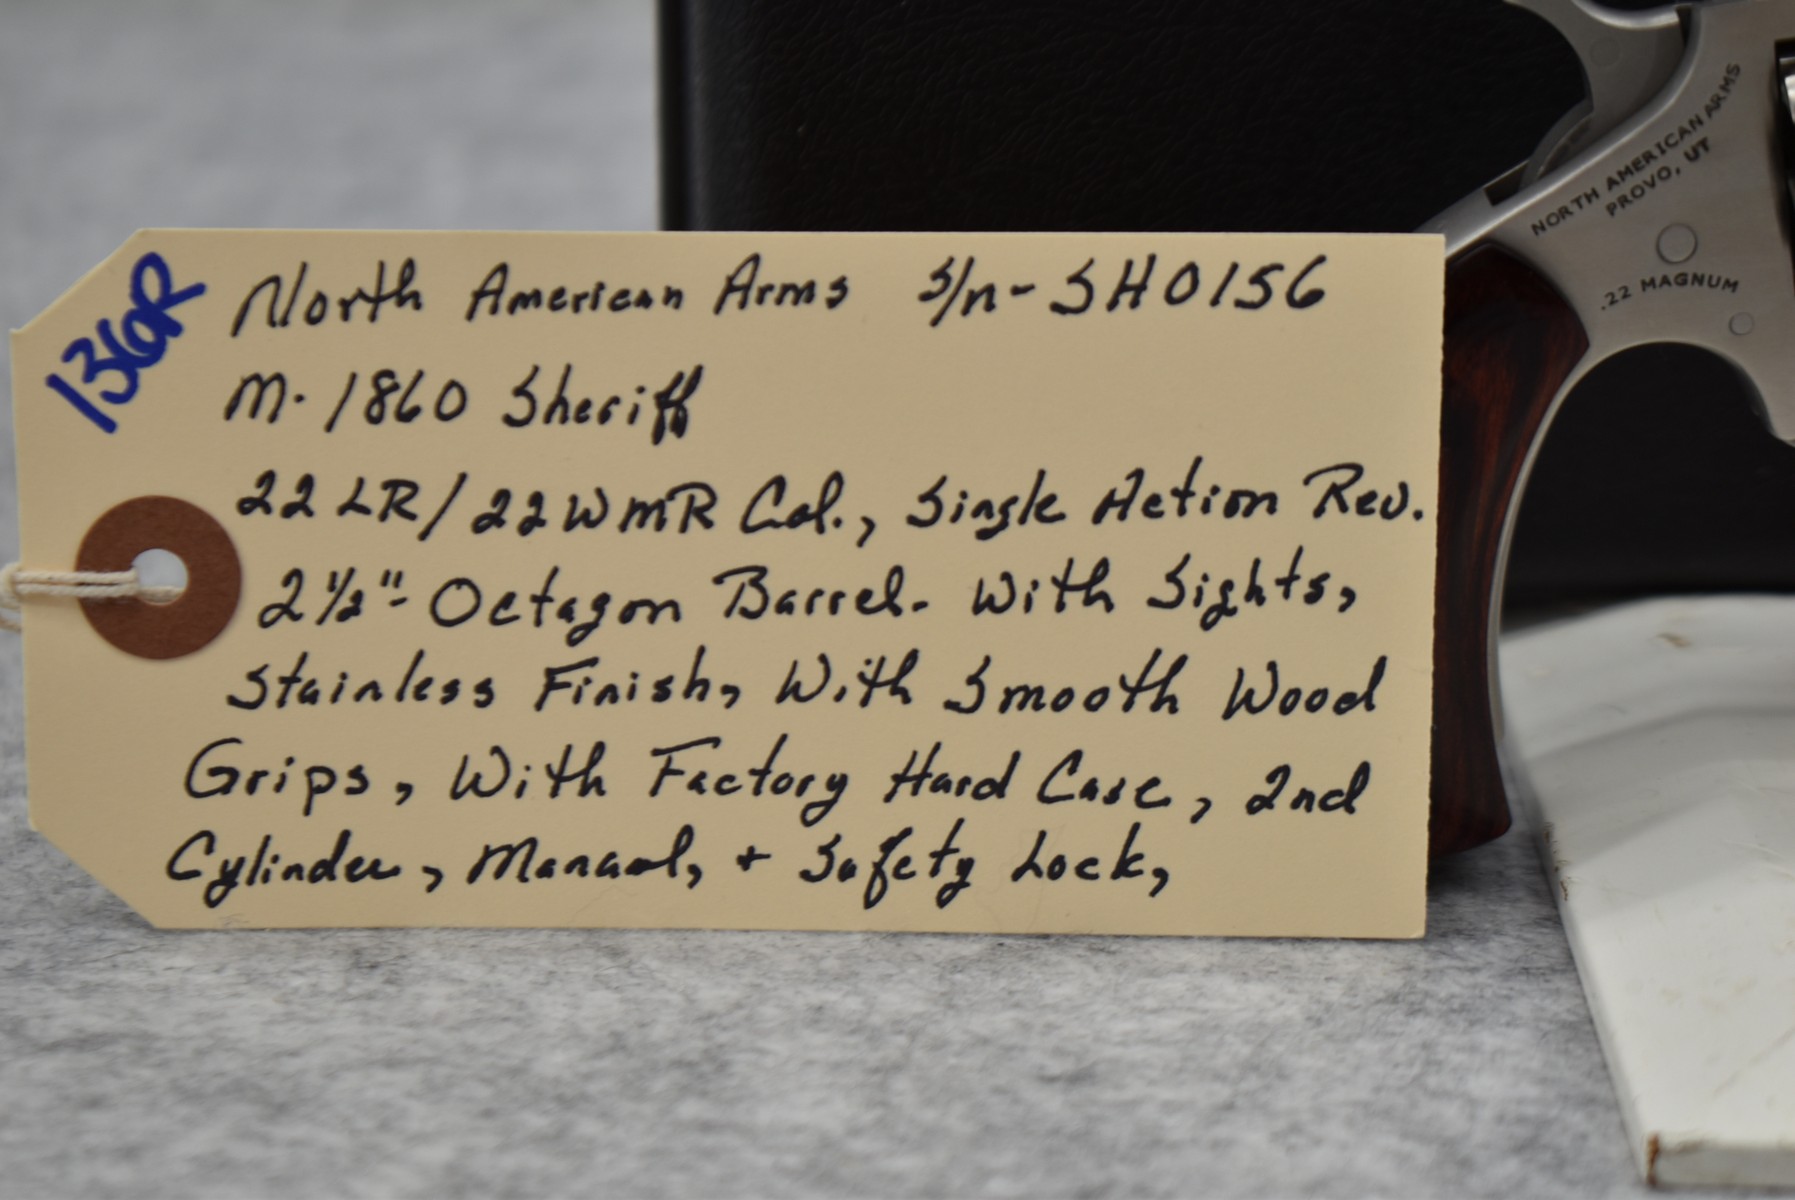 136R
North American Arms S/n- SH0156
M. 1860 Sheriff
22 LR/22WMR Cal., Single Action Rev.
2 1/2"- Octagon Barrel. With Sights,
Stainless Finish, With Smooth Wood
Grips, With Factory Hard Case, 2nd
Cylinder, Manual, + Safety Lock,
NORTH AMERICAN ARMS
PROVO, UT
.22 MAGNUM